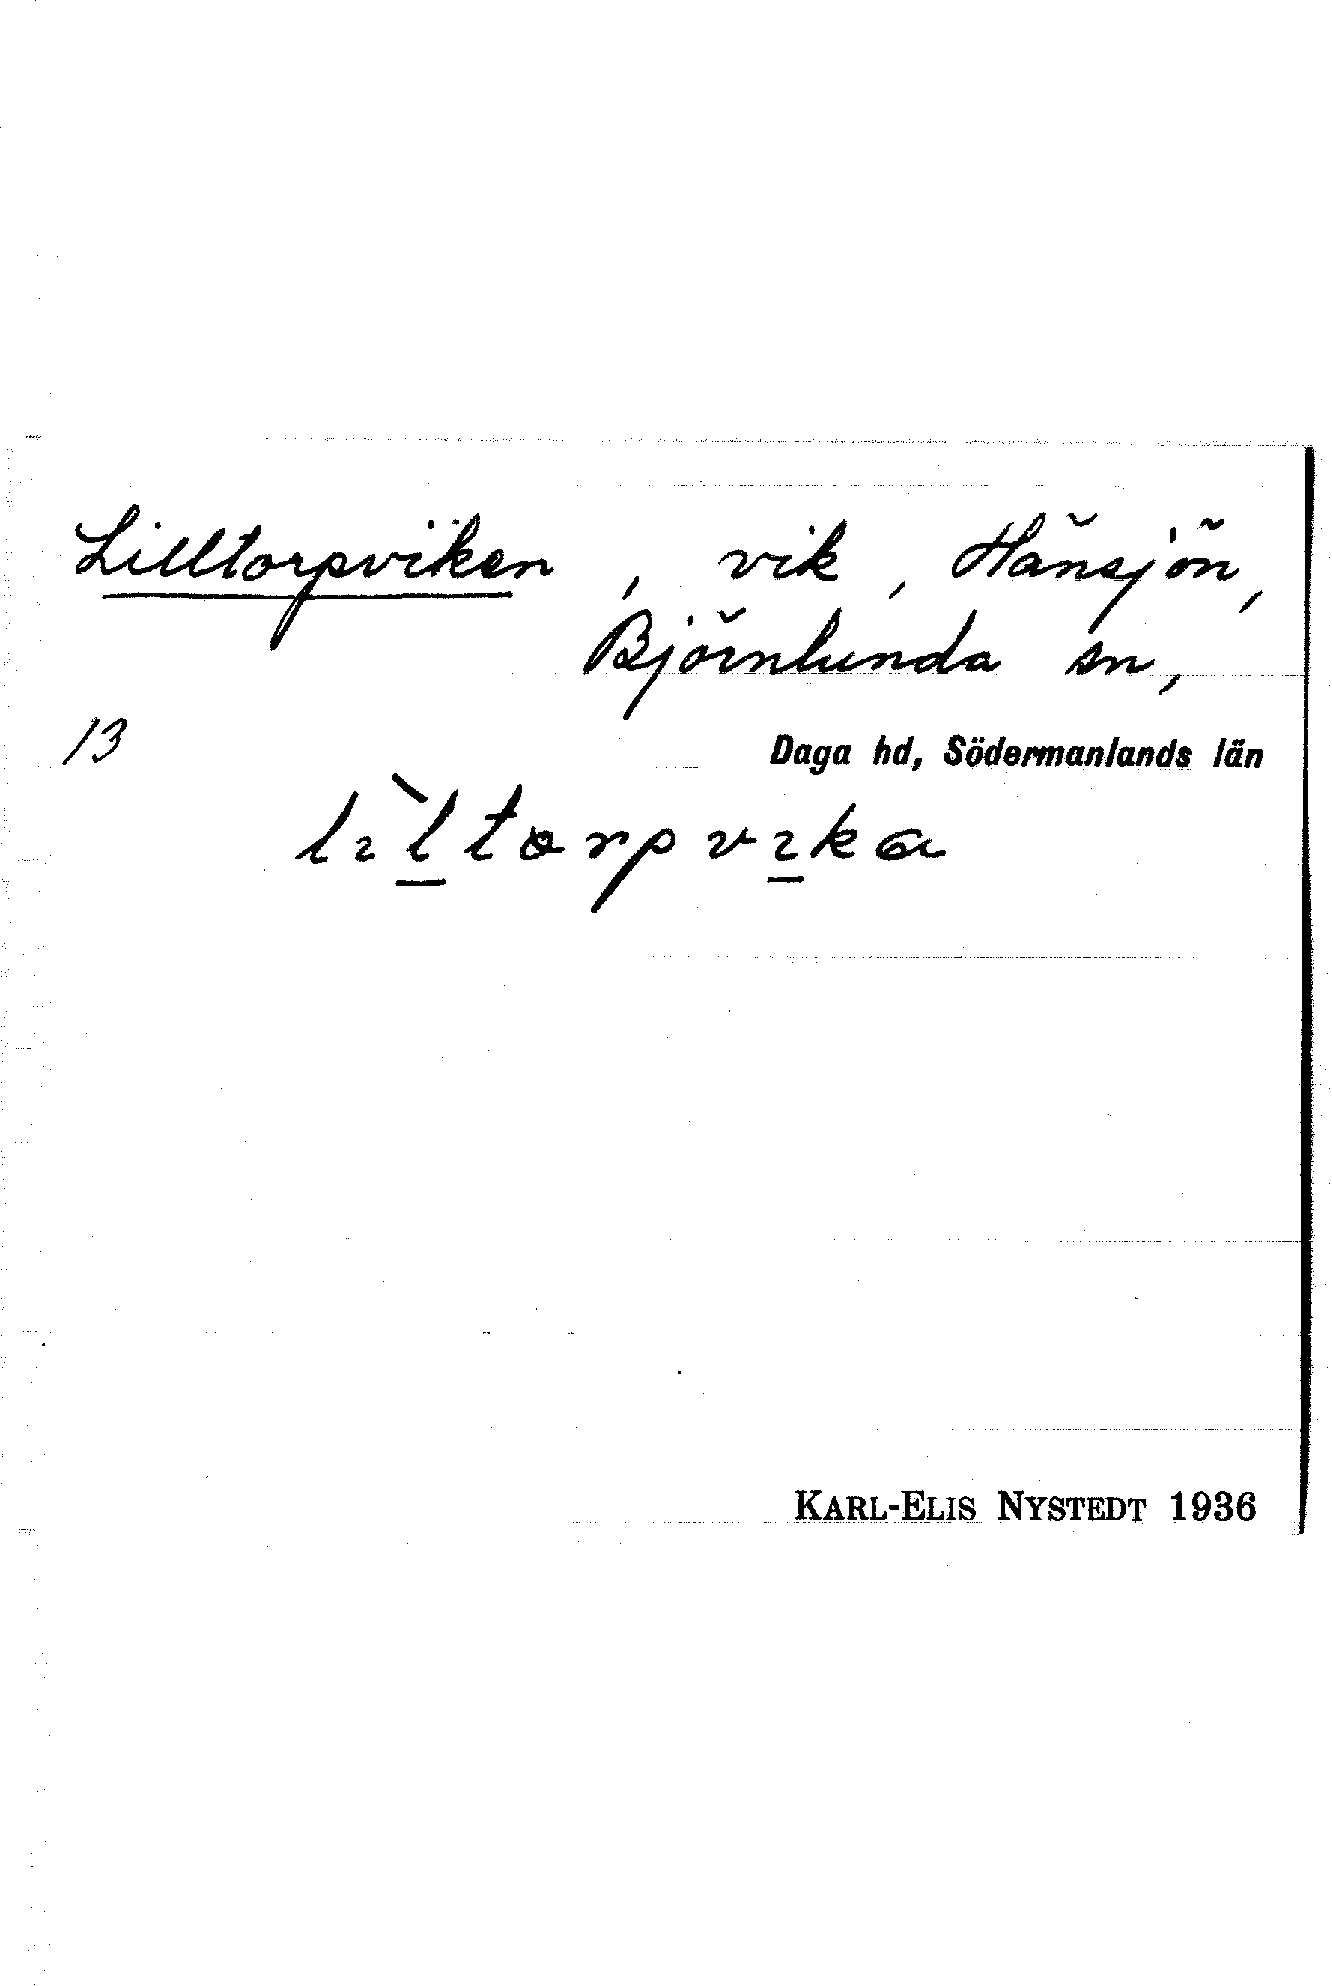 Lilltorpviken, vik, Hänsjön,
Björnlunda sn,
13
Daga hd, Södermanlands län
lìltorpvika
KARL-ELIS NYSTEDT 1936